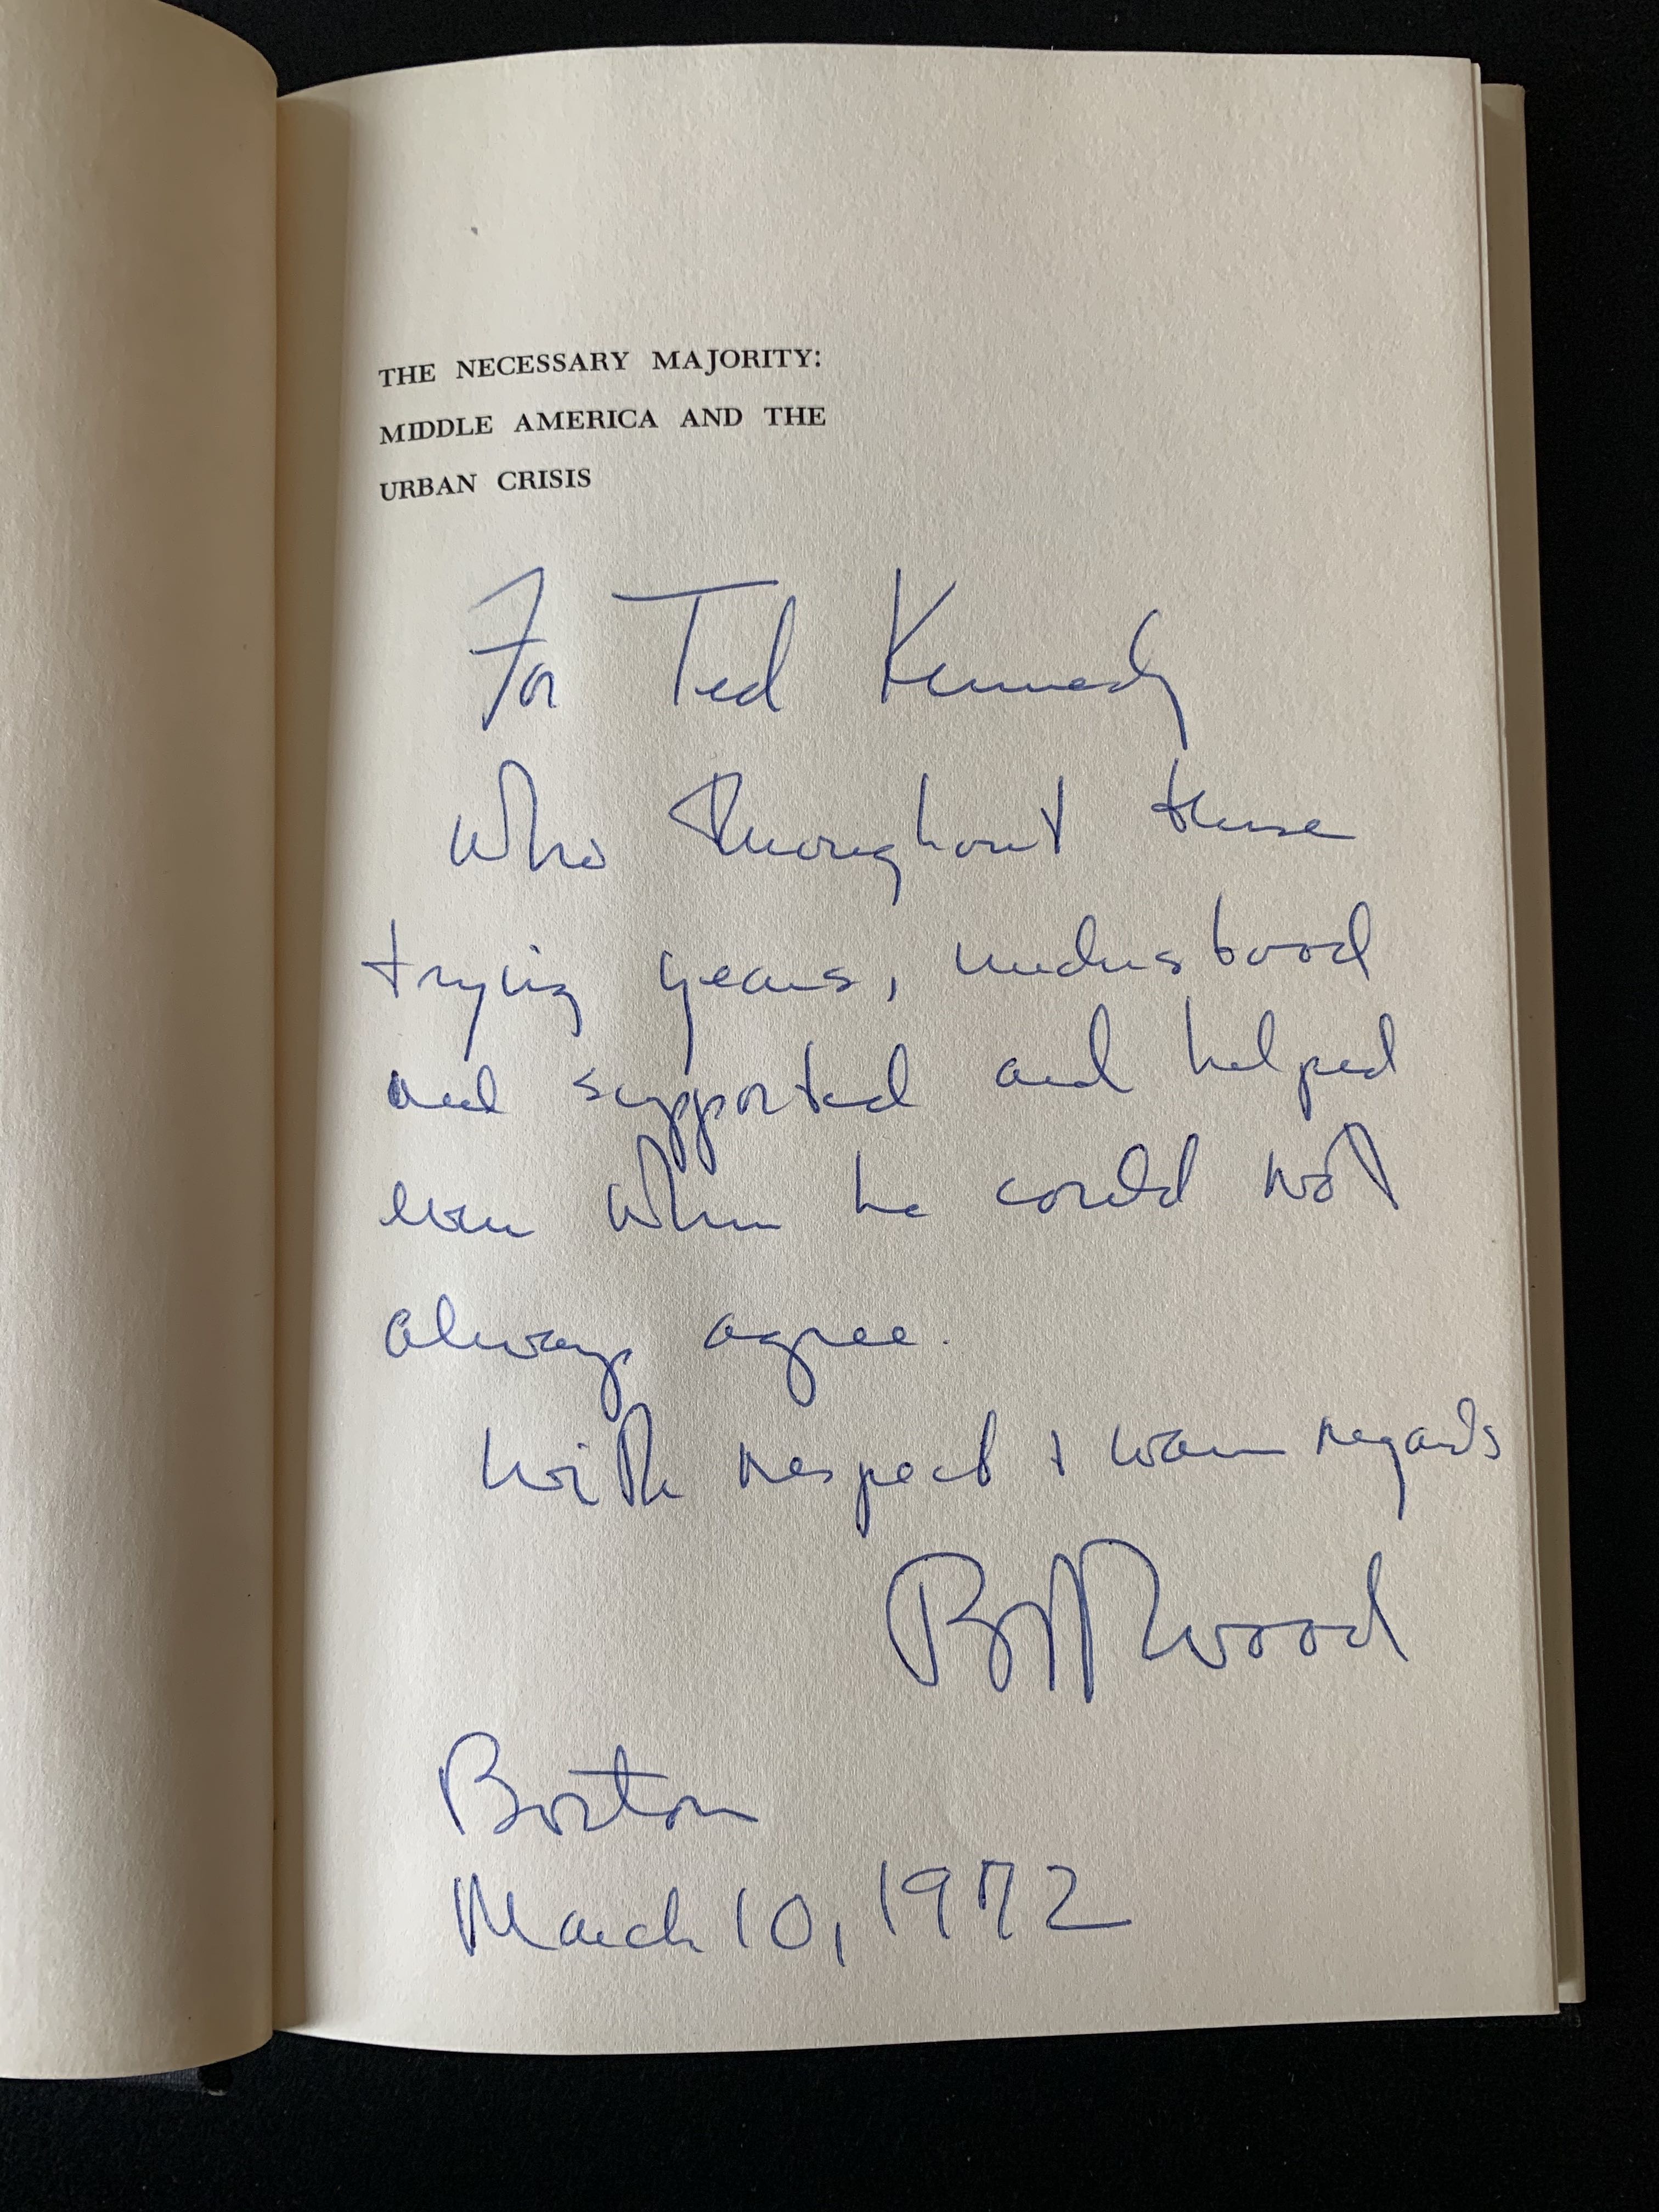 THE NECESSARY MAJORITY:
MIDDLE AMERICA AND THE
URBAN CRISIS
For Ted Kennedy
Who throughout these
trying years, understood
and supported and helped
even when he could not
always agree.
With respect + warm regards
Bob Wood
Boston
March 10, 1972